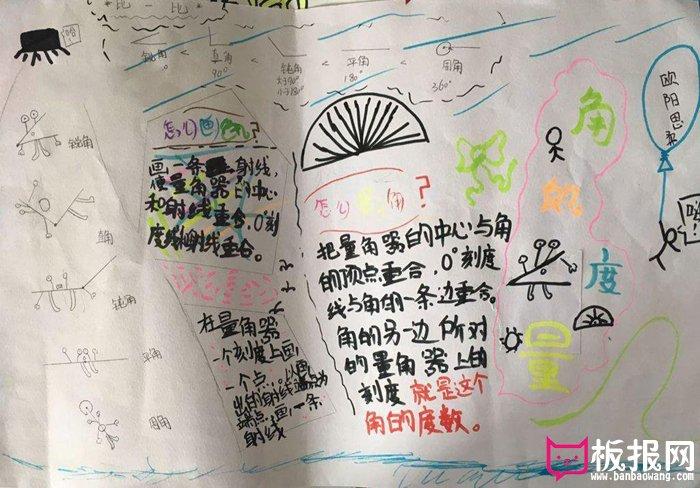 比一比
锐角 < 直角 90° < 钝角 大于90° 小于180° < 平角 180° < 周角 360°
锐角
直角
钝角
平角
周角
怎么画角?
画一条射线,
使量角器的中心
和射线重合,0°刻
度线射线重合。
在量角器
一个刻度上画
一个点
出的射线端点为
端点,画一条
射线
怎么量角?
把量角器的中心与角
的顶点重合,0°刻度
线与角的一条边重合。
角的另一边所对
的量角器上的
刻度就是这个
角的度数。
角
的
度
量
板报网
www.banbaowang.com